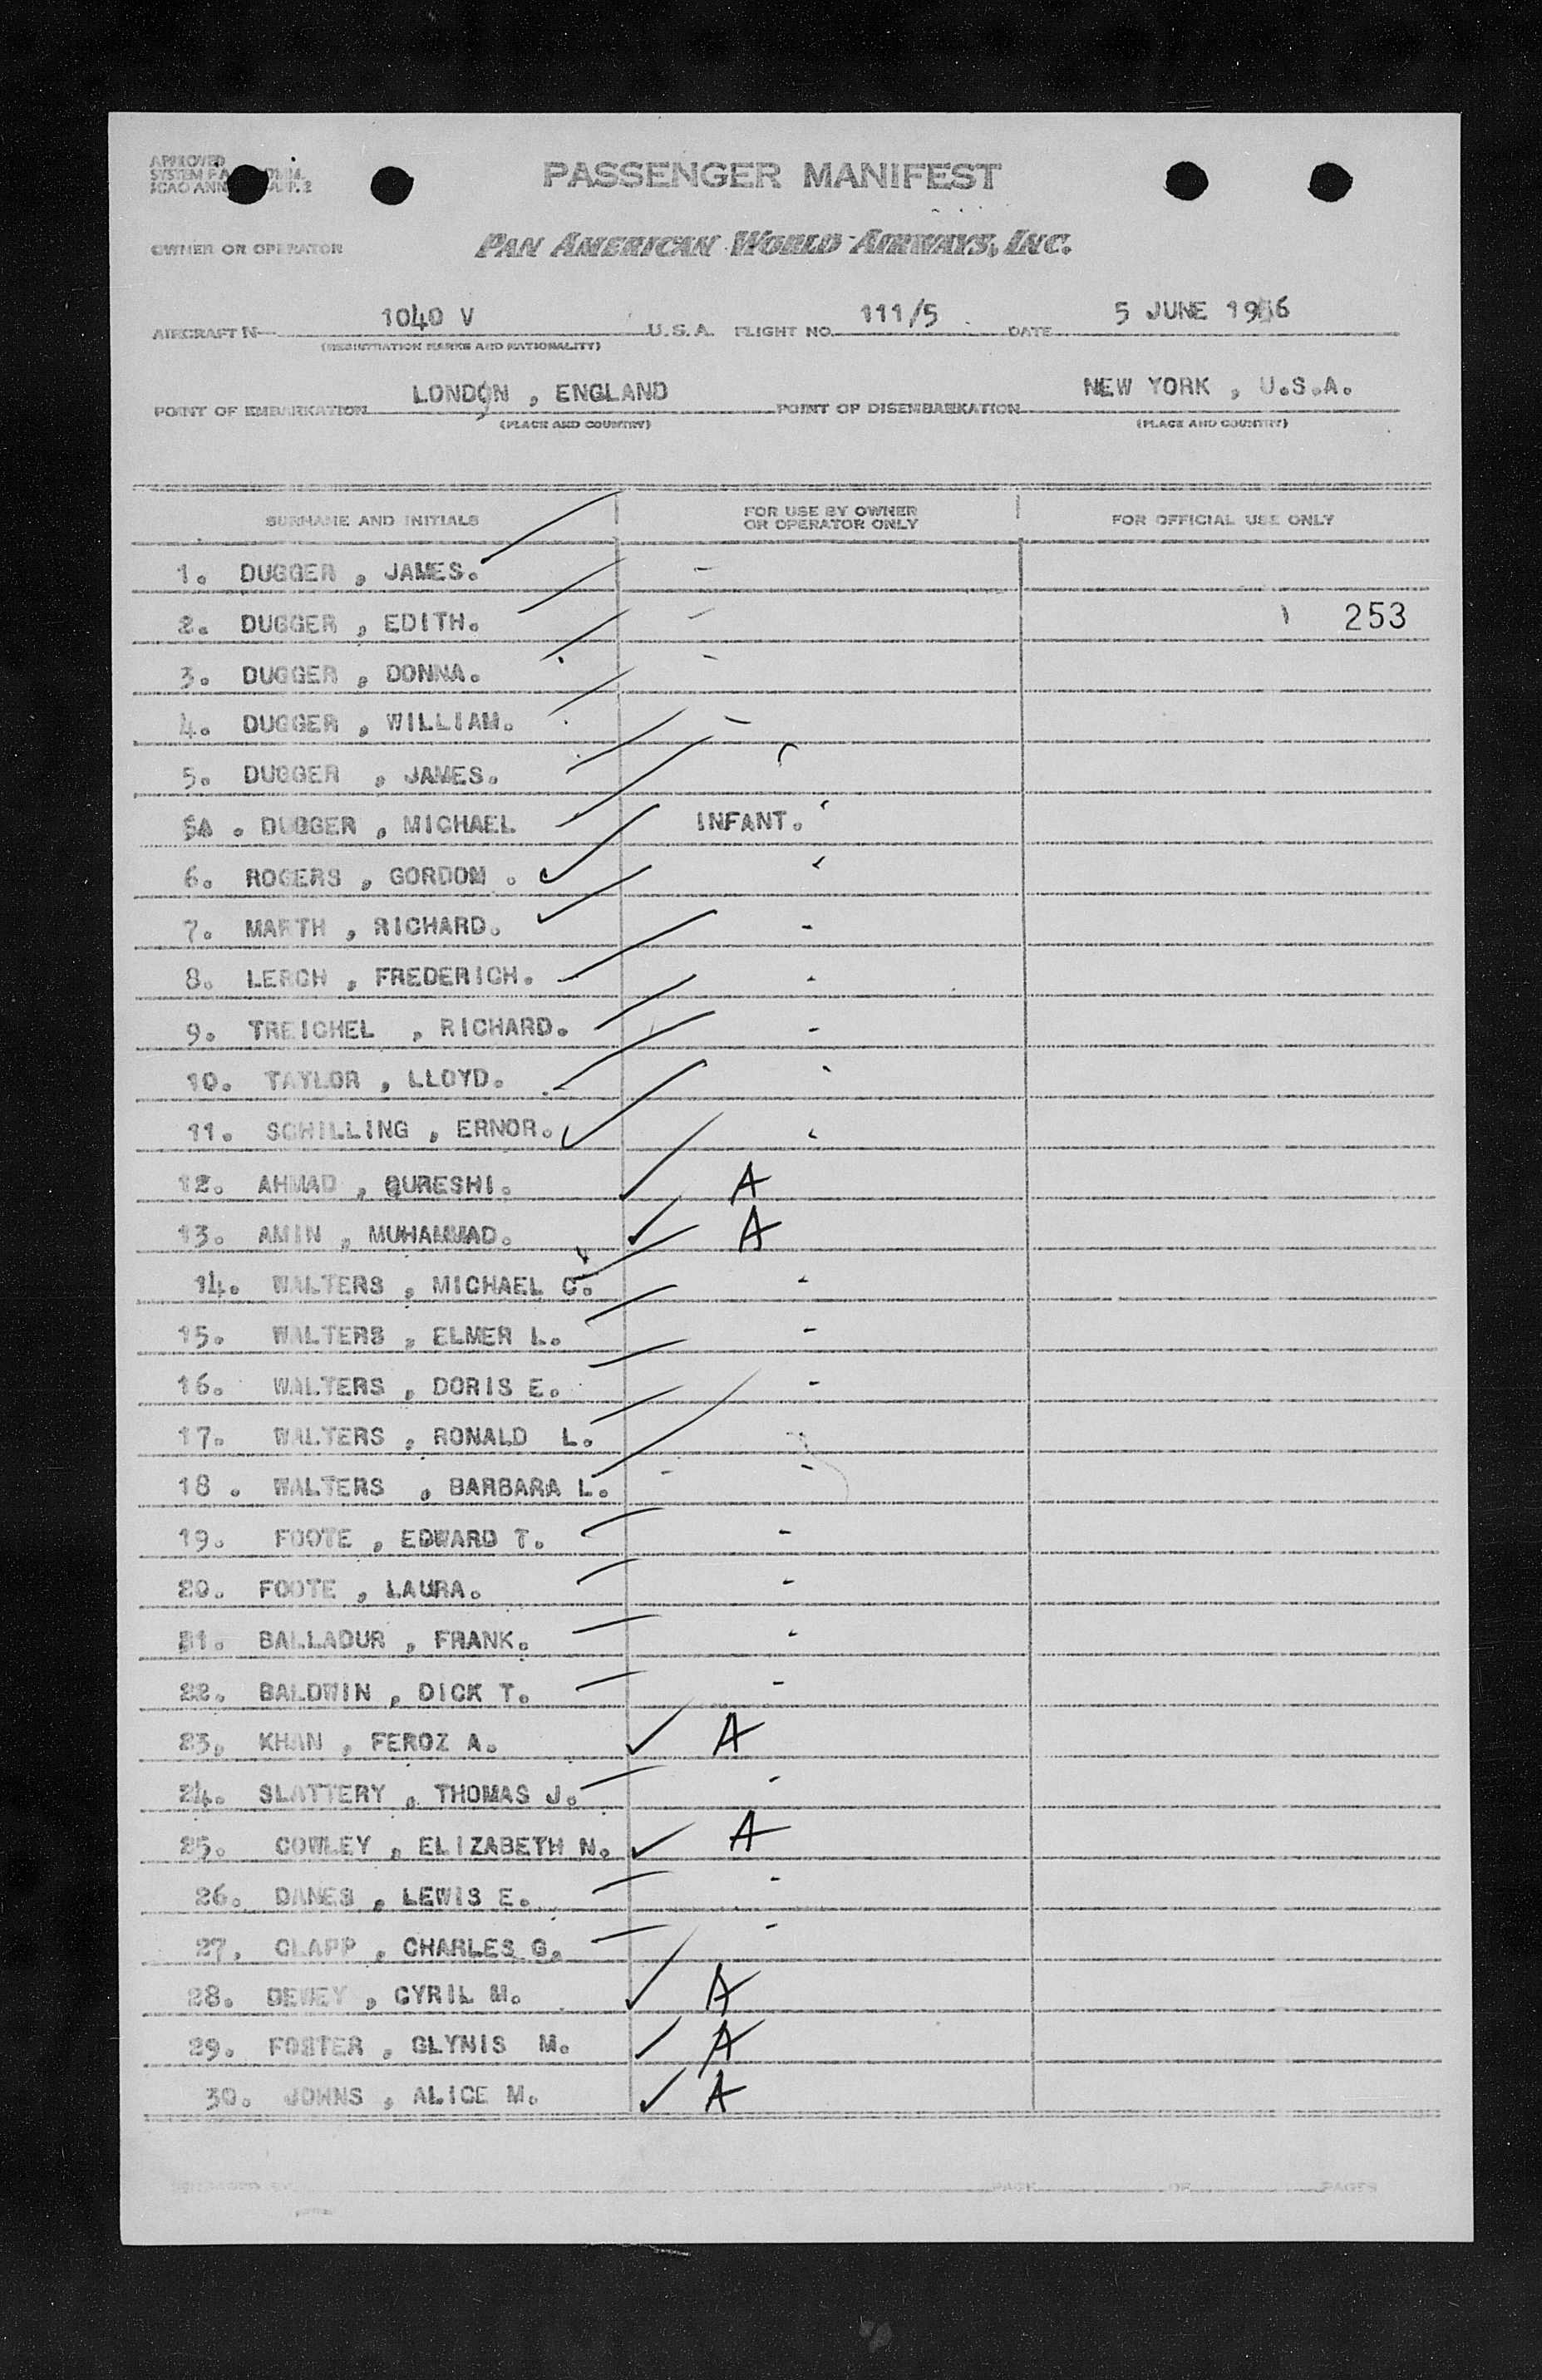 APPROVED
PASSENGER MANIFEST
SYSTEM F.A.
ICAO ANN
OWNER OR OPERATOR PAN AMERICAN WORLD AIRWAYS, INC.
AIRCRAFT N 1040 V U.S.A. FLIGHT NO. 111/5 DATE 5 JUNE 1956
(REGISTRATION MARKS AND NATIONALITY)
POINT OF EMBARKATION LONDON , ENGLAND POINT OF DISEMBARKATION NEW YORK , U.S.A.
(PLACE AND COUNTRY) (PLACE AND COUNTRY)
SURNAME AND INITIALS FOR USE BY OWNER OR OPERATOR ONLY FOR OFFICIAL USE ONLY
1. DUGGER , JAMES.
2. DUGGER , EDITH. 253
3. DUGGER , DONNA.
4. DUGGER , WILLIAM.
5. DUGGER , JAMES.
5A . DUGGER , MICHAEL INFANT.
6. ROGERS , GORDOM .
7. MARTH , RICHARD.
8. LERCH , FREDERICH.
9. TREICHEL , RICHARD.
10. TAYLOR , LLOYD.
11. SCHILLING , ERNOR.
12. AHMAD , QURESHI. A
13. AMIN , MUHAMMAD. A
14. WALTERS , MICHAEL C.
15. WALTERS , ELMER L.
16. WALTERS , DORIS E.
17. WALTERS , RONALD L.
18 . WALTERS , BARBARA L.
19. FOOTE , EDWARD T.
20. FOOTE , LAURA.
21. BALLADUR , FRANK.
22. BALDWIN , DICK T.
23. KHAN , FEROZ A. A
24. SLATTERY , THOMAS J.
25. COWLEY , ELIZABETH N. A
26. DANES , LEWIS E.
27. CLAPP , CHARLES G.
28. DEWEY , CYRIL M. A
29. FOSTER , GLYNIS M. A
30. JOHNS , ALICE M. A
PAGE OF PAGES